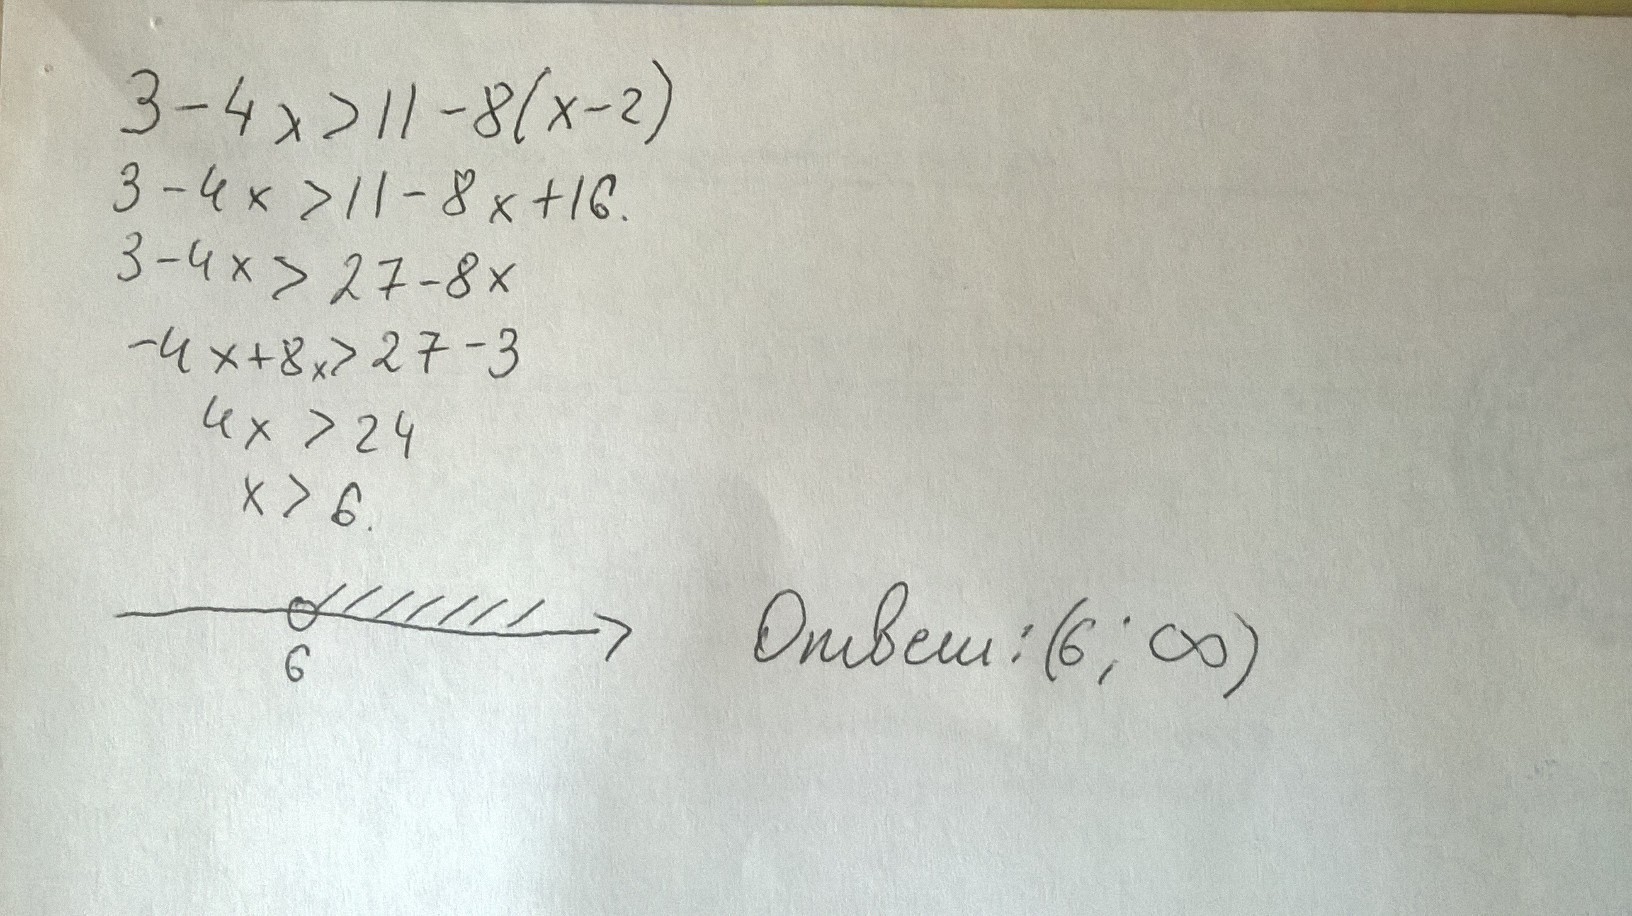 3-4x>11-8(x-2)
3-4x>11-8x+16.
3-4x>27-8x
-4x+8x>27-3
4x>24
x>6.
6
Ответ:(6;∞)